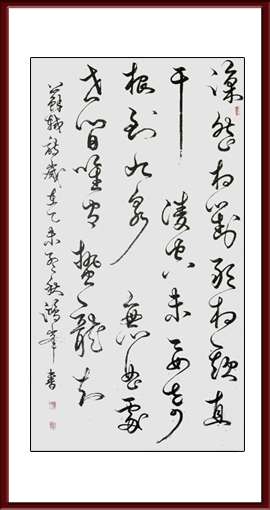 凜然相對敢相欺直
干凌空未要奇
根到九泉無曲處
世間唯有蟄龍知
蘇軾詩歲在乙未秋鴻峯書